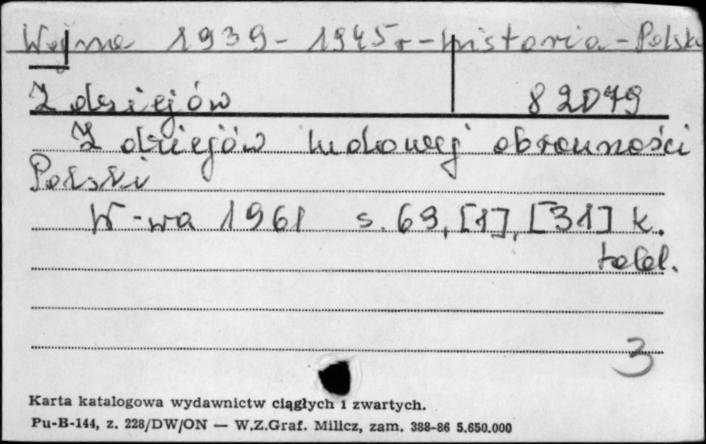 Wojna 1939-1945r-historia-Polska
Z dziejów 82079
Z dziejów ludowej obronności
Polski
W-wa 1961 s. 69, [1], [31] k.
tabl.
3
Karta katalogowa wydawnictw ciągłych i zwartych.
Pu-B-144, z. 228/DW/ON — W.Z.Graf. Milicz, zam. 388-86 5.650.000